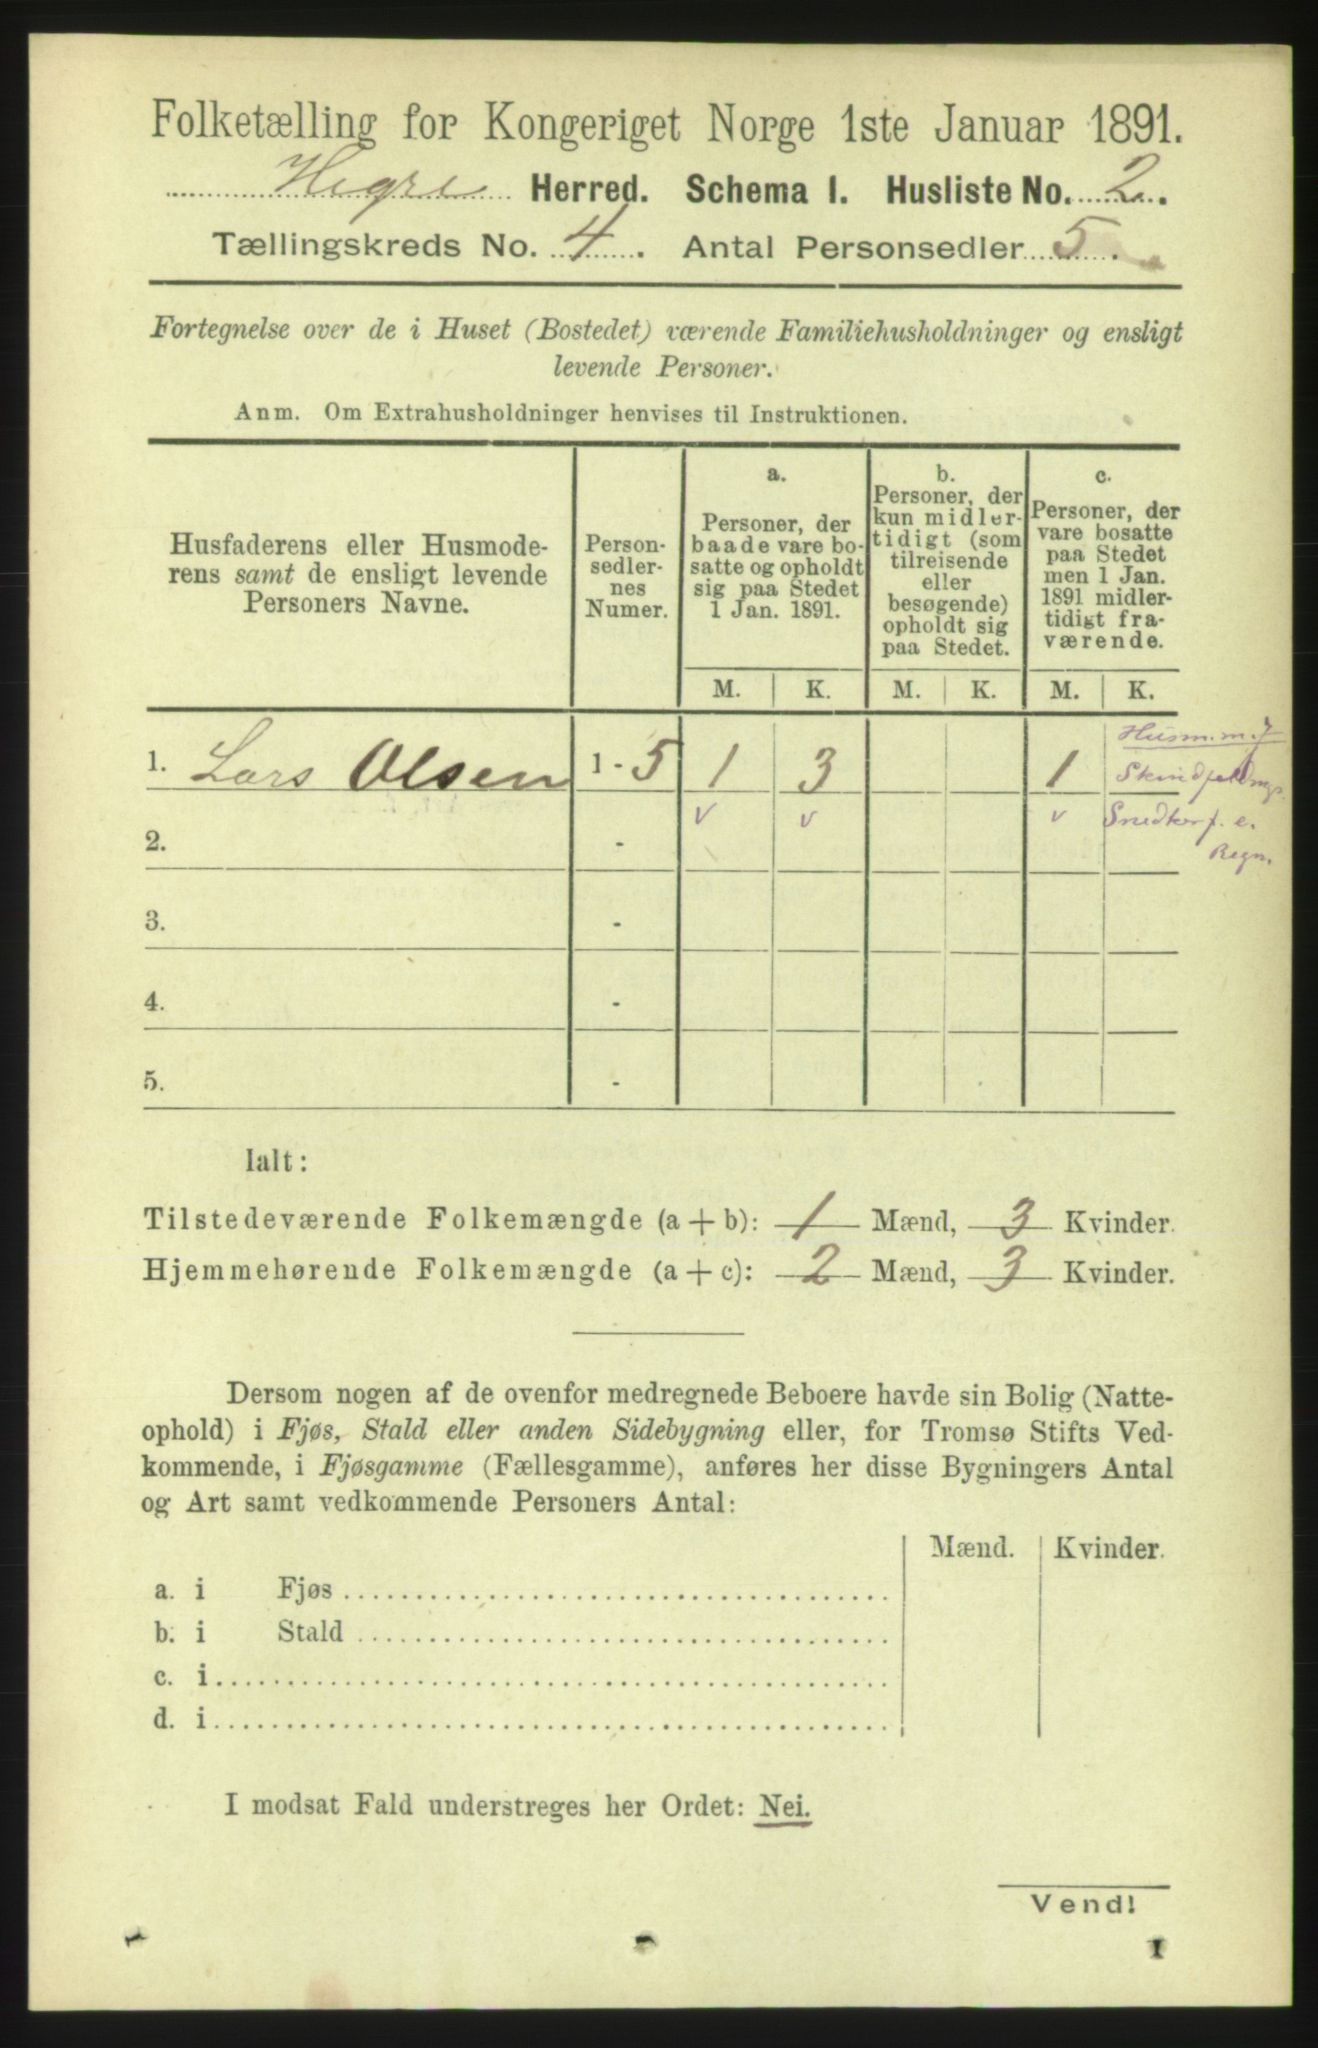 Folketælling for Kongeriget Norge 1ste Januar 1891.
Hegre Herred. Schema I. Husliste No. 2.
Tællingskreds No. 4. Antal Personsedler 5.
Fortegnelse over de i Huset (Bostedet) værende Familiehusholdninger og ensligt
levende Personer.
Anm. Om Extrahusholdninger henvises til Instruktionen.
Husfaderens eller Husmode-
rens samt de ensligt levende
Personers Navne.
Person-
sedler-
nes
Numer.
a.
Personer, der
baade vare bo-
satte og opholdt
sig paa Stedet
1 Jan. 1891.
b.
Personer, der
kun midler-
tidigt (som
tilreisende
eller
besøgende)
opholdt sig
paa Stedet.
c.
Personer, der
vare bosatte
paa Stedet
men 1 Jan.
1891 midler-
tidigt fra-
værende.
M. K. M. K. M. K.
1. Lars Olsen 1-5 1 3 1
Husm. m. J
v v v Snedker f. e.
Regn.
2. -
3. -
4. -
5. -
Ialt:
Tilstedeværende Folkemængde (a + b): 1 Mænd, 3 Kvinder.
Hjemmehørende Folkemængde (a + c): 2 Mænd, 3 Kvinder.
Dersom nogen af de ovenfor medregnede Beboere havde sin Bolig (Natte-
ophold) i Fjøs, Stald eller anden Sidebygning eller, for Tromsø Stifts Ved-
kommende, i Fjøsgamme (Fællesgamme), anføres her disse Bygningers Antal
og Art samt vedkommende Personers Antal:
Mænd. Kvinder.
a. i Fjøs
b. i Stald
c. i
d. i
I modsat Fald understreges her Ordet: Nei.
Vend!
1